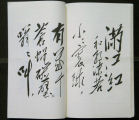 满江红
和郭沫若
小小寰球
有几个
苍蝇碰壁